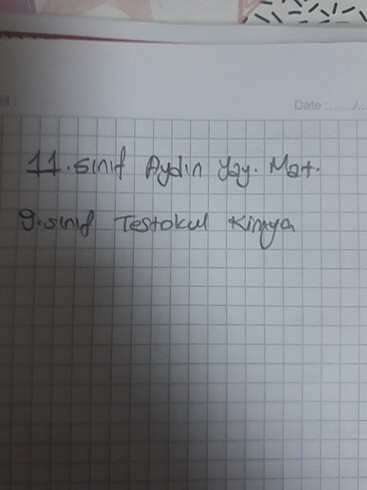 Date :....../...
11.sınıf Aydın Yay. Mat.
9.sınıf Testokul Kimya